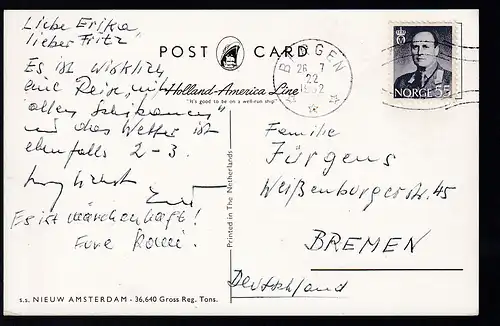 Liebe Erika,
lieber Fritz
Es ist wirklich
eine Reise "mit
allen Schikanen"
und das Wetter ist
ebenfalls 2-3.
Es ist märchenhaft!
Eure
POST CARD
Holland-America Line
"It's good to be on a well-run ship"
BERGEN
26 7
22
NORGE 55
Printed in The Netherlands
Familie
Jürgens
Weißenburgerstr. 45
BREMEN
Deutschland
s.s. NIEUW AMSTERDAM - 36,640 Gross Reg. Tons.